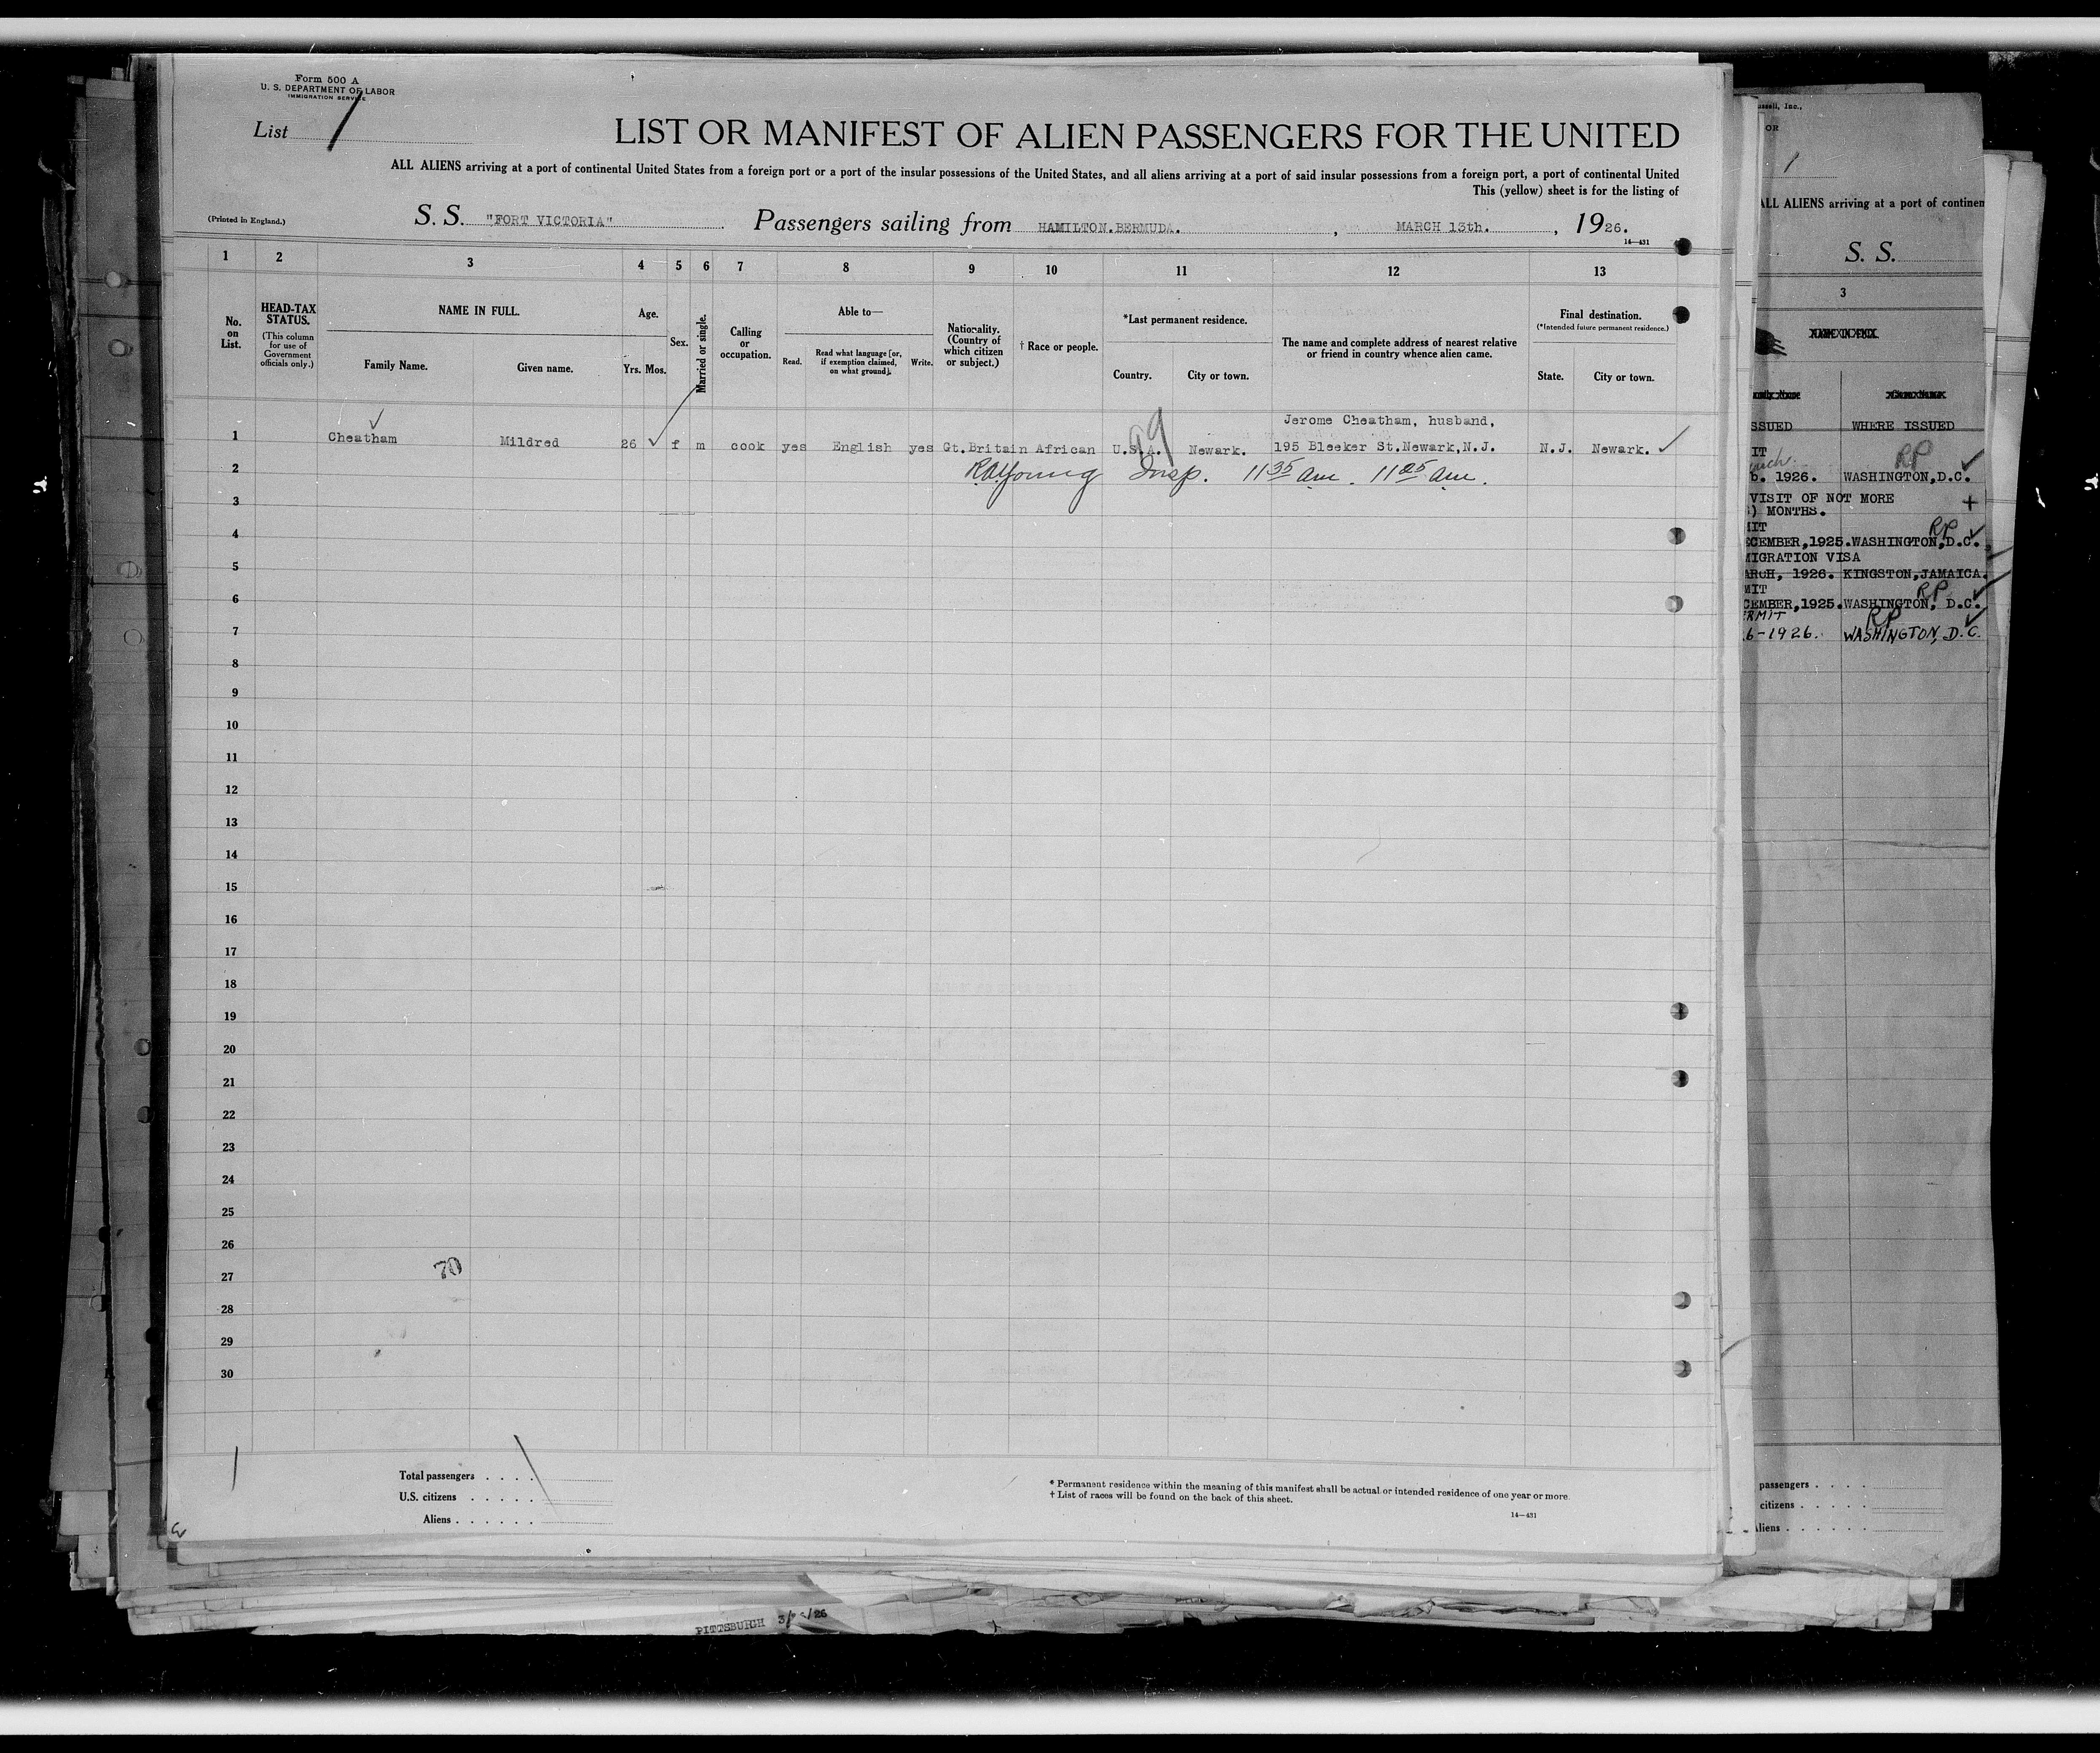 Form 500 A
U. S. DEPARTMENT OF LABOR
IMMIGRATION SERVICE
List 1
LIST OR MANIFEST OF ALIEN PASSENGERS FOR THE UNITED
ALL ALIENS arriving at a port of continental United States from a foreign port or a port of the insular possessions of the United States, and all aliens arriving at a port of said insular possessions from a foreign port, a port of continental United
This (yellow) sheet is for the listing of
(Printed in England.)
S. S. "FORT VICTORIA" Passengers sailing from HAMILTON.BERMUDA. , MARCH 13th. , 1926.
14—431
1 2 3 4 5 6 7 8 9 10 11 12 13
No. on List.
HEAD-TAX STATUS.
(This column for use of Government officials only.)
NAME IN FULL.
Family Name. Given name.
Age.
Yrs. Mos.
Sex.
Married or single.
Calling or occupation.
Able to—
Read. Read what language [or, if exemption claimed, on what ground]. Write.
Nationality. (Country of which citizen or subject.)
† Race or people.
*Last permanent residence.
Country. City or town.
The name and complete address of nearest relative or friend in country whence alien came.
Final destination.
(*Intended future permanent residence.)
State. City or town.
Jerome Cheatham, husband,
1 Cheatham Mildred 26 f m cook yes English yes Gt.Britain African U.S.A. Newark. 195 Bleeker St.Newark,N.J. N.J. Newark.
2 RAYoung Insp. 11 35 am. 11 25 am.
3
4
5
6
7
8
9
10
11
12
13
14
15
16
17
18
19
20
21
22
23
24
25
26
27
28
29
30
70
Total passengers
U.S. citizens
Aliens
* Permanent residence within the meaning of this manifest shall be actual or intended residence of one year or more.
† List of races will be found on the back of this sheet.
14—431
PITTSBURGH
OR
1
ALL ALIENS arriving at a port of continen
S. S.
3
SSUED WHERE ISSUED
IT RP
. 1926. WASHINGTON,D.C.
VISIT OF NOT MORE
) MONTHS.
MIT RP
ECEMBER,1925. WASHINGTON,D.C.
MIGRATION VISA
ARCH, 1926. KINGSTON,JAMAICA.
MIT RP
CEMBER,1925. WASHINGTON, D.C.
ERMIT RP
6-1926. WASHINGTON, D.C.
passengers
citizens
Aliens